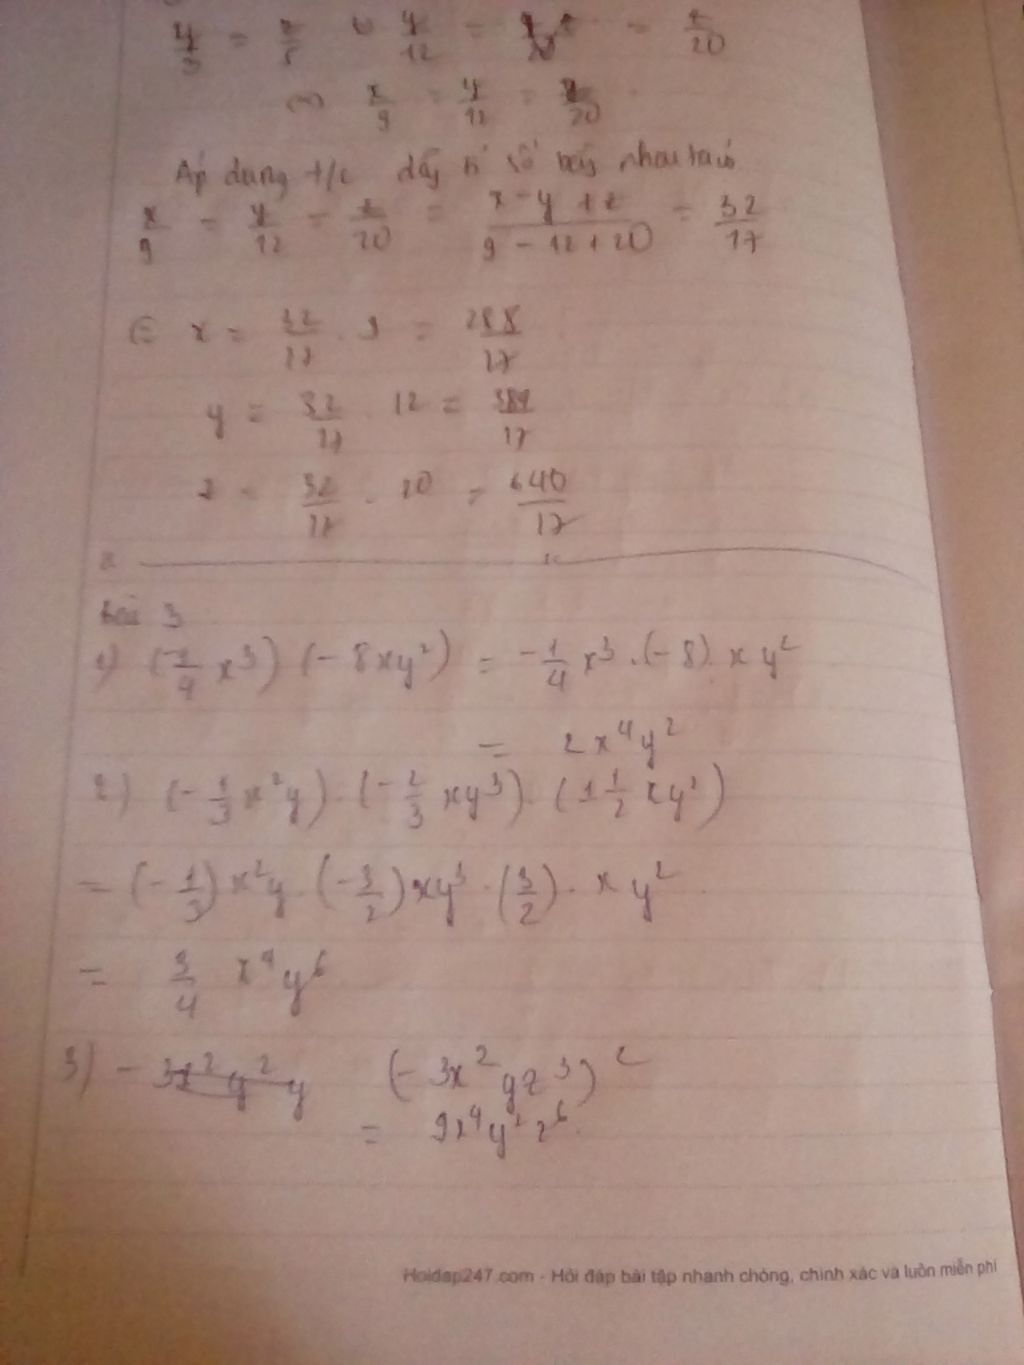 y/3 = z/5 y/12 = z/20
x/9 = y/12 = z/20
Áp dụng t/c dãy tỉ số bằng nhau ta có
x/9 = y/12 = z/20 = (x - y + z)/(9 - 12 + 20) = 32/17
x = 32/17 . 9 = 288/17
y = 32/17 . 12 = 384/17
z = 32/17 . 20 = 640/17
bài 3
1) (-1/4 x³) (-8xy²) = -1/4 x³ . (-8) . xy²
= 2x⁴y²
2) (-1/3 x²y) . (-2/3 xy³) . (1 1/2 xy²)
= (-1/3) x²y . (-3/2) xy³ . (3/2) . xy²
= 3/4 x⁴y⁶
3) (-3x²yz³)²
= 9x⁴y²z⁶.
Hoidap247.com - Hỏi đáp bài tập nhanh chóng, chính xác và luôn miễn phí